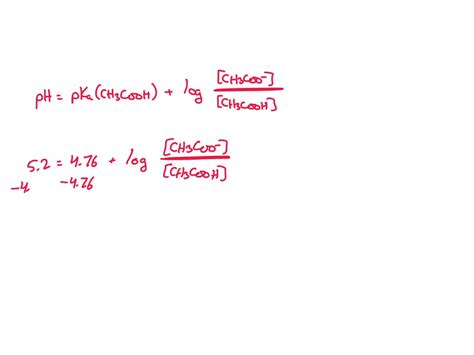 pH = pKa (CH3COOH) + log [CH3COO-] / [CH3COOH]
5.2 = 4.76 + log [CH3COO-] / [CH3COOH]
-4. -4.76